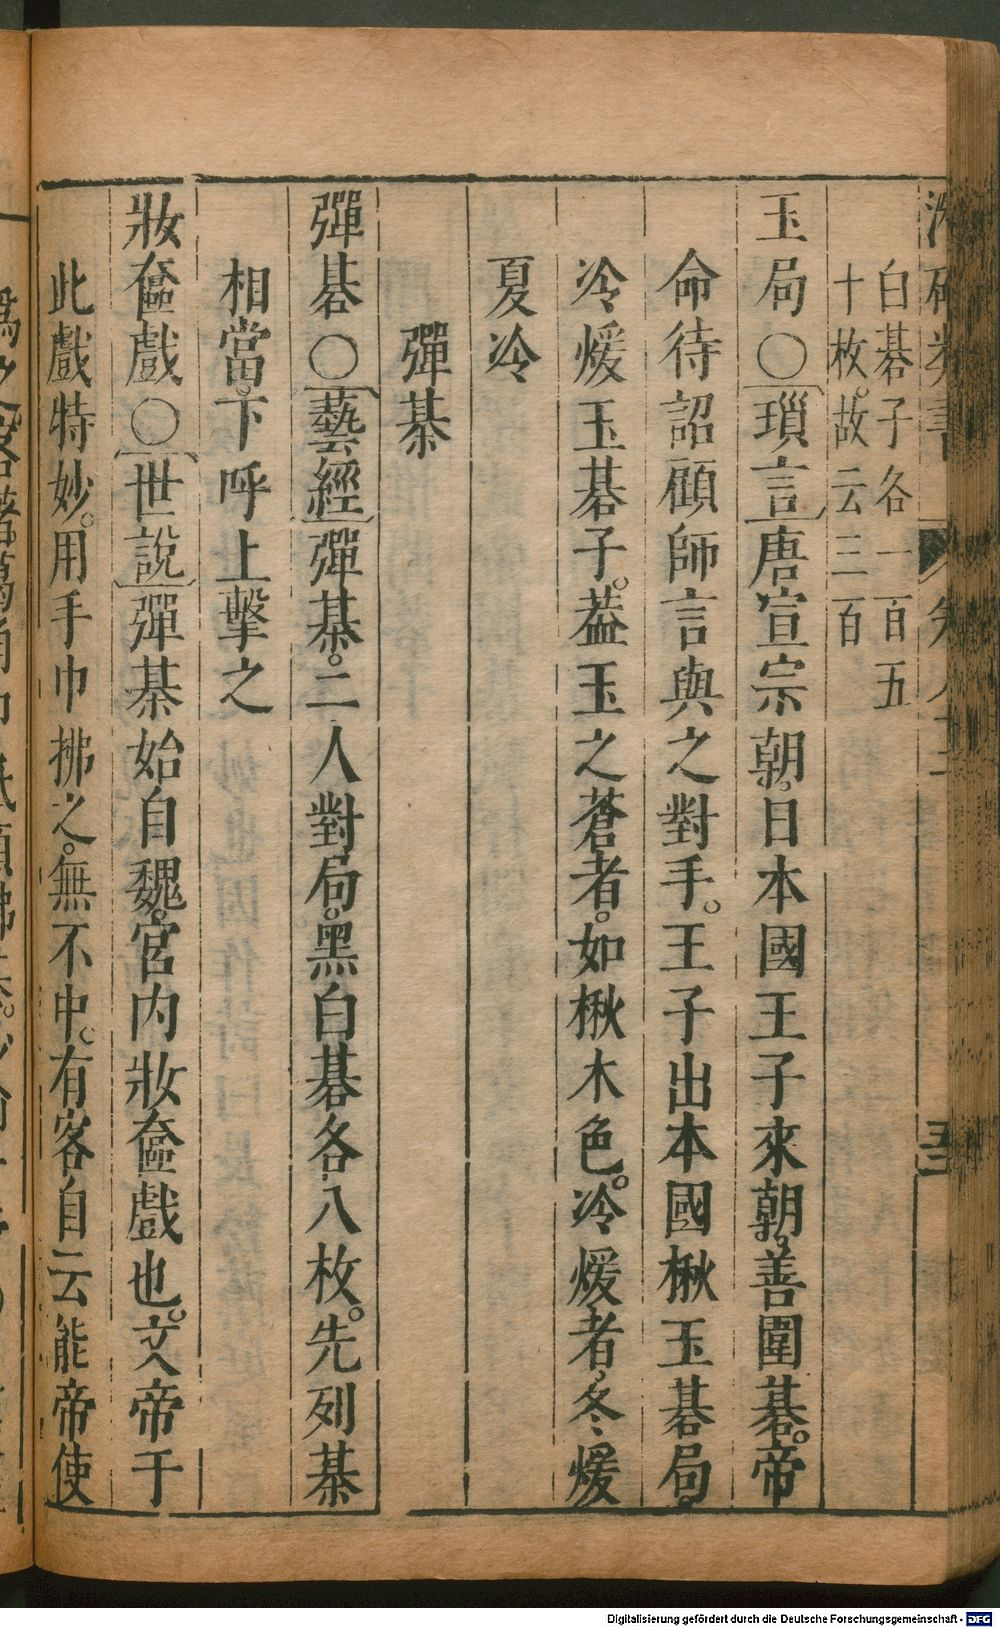 白碁子各一百五
十枚。故云三百
玉局○瑣言唐宣宗朝。日本國王子來朝。善圍碁。帝
命待詔顧師言與之對手。王子出本國楸玉碁局。
冷煖玉碁子。葢玉之蒼者。如楸木色。冷煖者。冬煖
夏冷
彈棊
彈碁○藝經彈棊。二人對局。黑白碁各八枚。先列棊
相當。下呼上擊之
妝奩戲○世說彈棊始自魏。宮內妝奩戲也。文帝于
此戲特妙。用手巾拂之。無不中。有客自云能。帝使
Digitalisierung gefördert durch die Deutsche Forschungsgemeinschaft - DFG